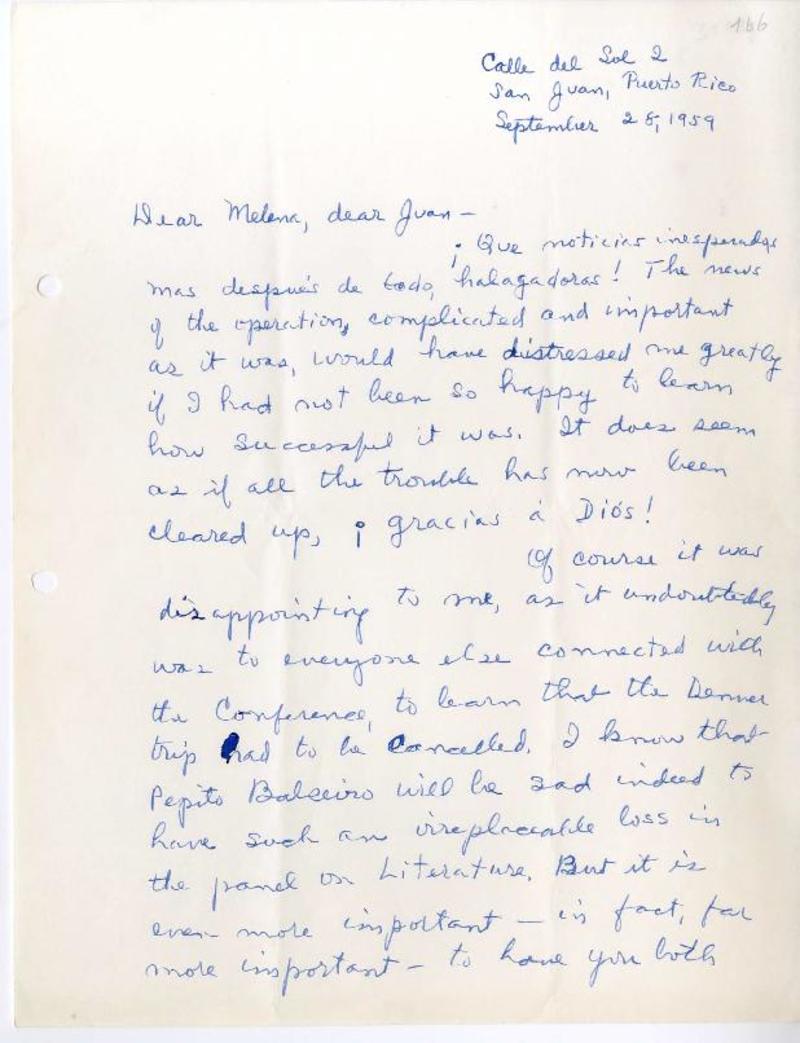 166
Calle del Sol 2
San Juan, Puerto Rico
September 28, 1959
Dear Melena, dear Juan —
¡ Que noticias inesperadas
mas después de todo, halagadoras! The news
of the operation, complicated and important
as it was, would have distressed me greatly
if I had not been so happy to learn
how successful it was. It does seem
as if all the trouble has now been
cleared up, ¡ gracias á Diós!
Of course it was
disappointing to me, as it undoubtedly
was to everyone else connected with
the Conference, to learn that the Denver
trip had to be cancelled. I know that
Pepito Balseiro will be sad indeed to
have such an irreplaceable loss in
the panel on Literature. But it is
even more important — in fact, far
more important — to have you both